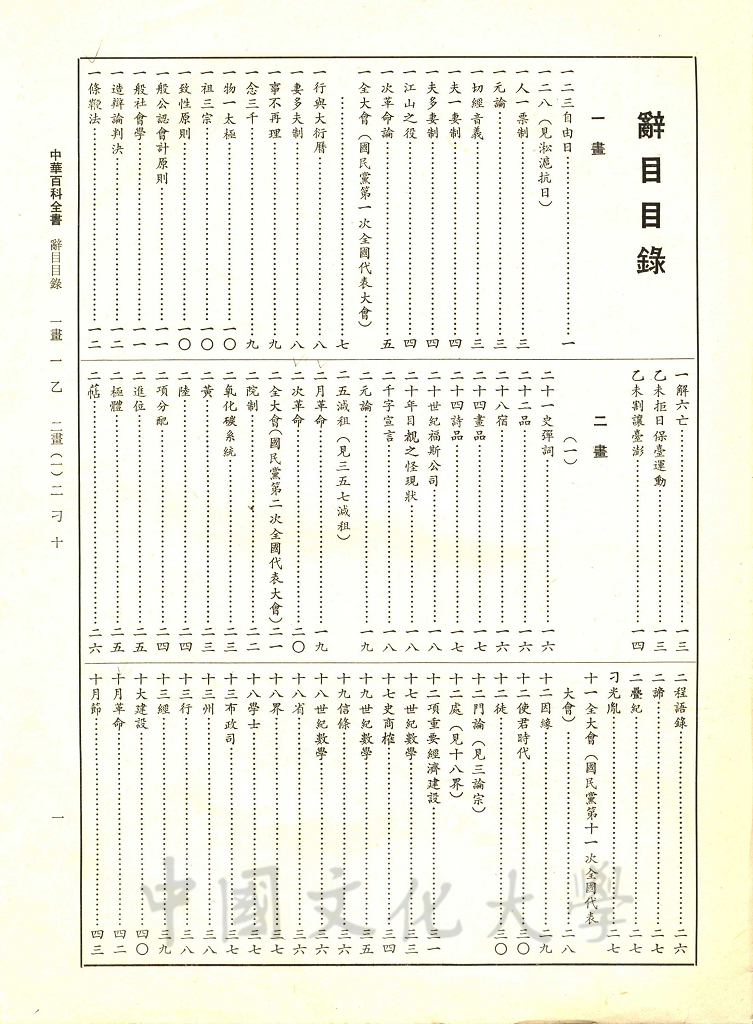 辭目目錄
一畫
一二三自由日……一
一二八(見淞滬抗日)
一人一票制……三
一元論……三
一切經音義……三
一夫一妻制……四
一夫多妻制……四
一江山之役……四
一次革命論……五
一全大會(國民黨第一次全國代表大會)
……七
一行與大衍曆……八
一妻多夫制……八
一事不再理……九
一念三千……九
一物一太極……一〇
一祖三宗……一〇
一致性原則……一〇
一般公認會計原則……一一
一般社會學……一一
一造辯論判決……一二
一條鞭法……一二
一解六亡……一三
乙未拒日保臺運動……一三
乙未割讓臺澎……一四
二畫
(一)
二十一史彈詞……一六
二十二品……一六
二十八宿……一六
二十四畫品……一七
二十四詩品……一七
二十世紀福斯公司……一八
二十年目覩之怪現狀……一八
二千字宣言……一八
二元論……一九
二五減租(見三五七減租)
二月革命……一九
二次革命……二〇
二全大會(國民黨第二次全國代表大會)二一
二院制……二二
二氧化碳系統……二三
二黃……二三
二陸……二四
二項分配……二四
二進位……二五
二極體……二五
二㽃……二六
二程語錄……二六
二諦……二七
二疊紀……二七
刁光胤……二七
十一全大會(國民黨第十一次全國代表
大會)……二八
十二因緣……二九
十二使君時代……三〇
十二徒……三〇
十二門論(見三論宗)
十二處(見十八界)
十二項重要經濟建設……三一
十七世紀數學……三三
十七史商榷……三四
十九世紀數學……三五
十九信條……三六
十八世紀數學……三六
十八省……三六
十八界……三七
十八學士……三七
十三布政司……三七
十三州……三八
十三行……三八
十三經……三九
十大建設……四〇
十月革命……四二
十月節……四三
中華百科全書 辭目目錄 一畫 一乙 二畫(一)二刁十
一
中國文化大學